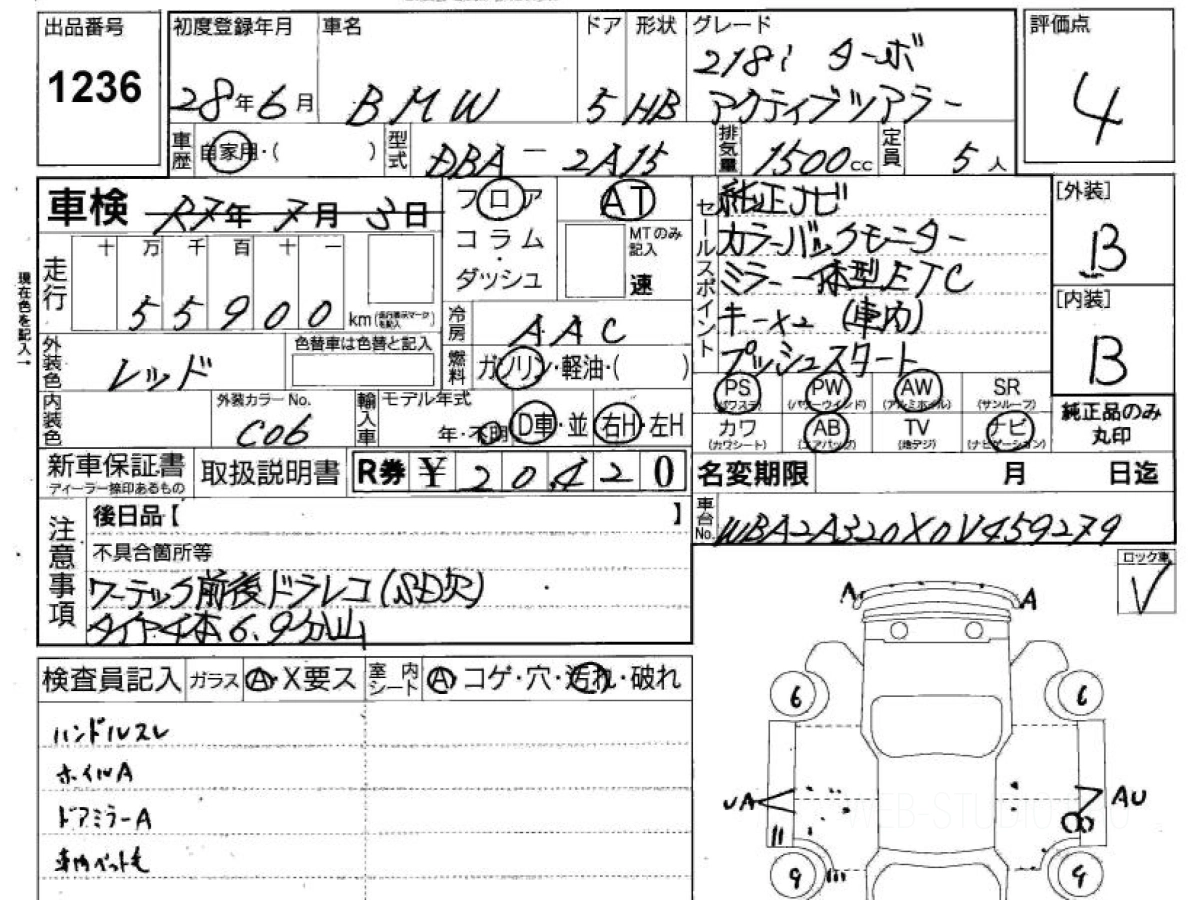 出品番号 初度登録年月 車名 ドア 形状 グレード 評価点
1236 28年6月 BMW 5 HB 218i ターボ アクティブツアラー 4
車歴 自家用・( ) 型式 DBA-2A15 排気量 1500cc 定員 5人
車検 R7年7月3日 フロア コラム・ダッシュ AT MTのみ記入 速
セールスポイント
純正ナビ
カラーバックモニター
ミラー一体型ETC
キー×2 (車内)
プッシュスタート
[外装] B
[内装] B
現在色を記入→
走行 十 万 千 百 十 一
55900 km(走行表示マークを記入)
冷房 AAC
外装色 レッド 色替車は色替と記入
燃料 ガソリン・軽油・( )
内装色 外装カラーNo. C06 輸入車 モデル年式 年・不明 D車・並 右H・左H
PS (パワステ) PW (パワーウインド) AW (アルミホイル) SR (サンルーフ)
カワ (カワシート) AB (エアバック) TV (地デジ) ナビ (ナビゲーション)
純正品のみ丸印
新車保証書 ディーラー捺印あるもの 取扱説明書 R券 ¥ 20420
名変期限 月 日迄
車台No. WBA2A320X0V459279
注意事項
後日品【 】
不具合箇所等
ワーテック前後ドラレコ(SD欠)
タイヤ4本6.9分山
ロック車 V
検査員記入 ガラス A・X要ス 室内シート A・コゲ・穴・汚れ・破れ
ハンドルスレ
ホイルA
ドアミラーA
車内ペット毛
A A
6 6
UA AU
9 9
WEB-STUDIO